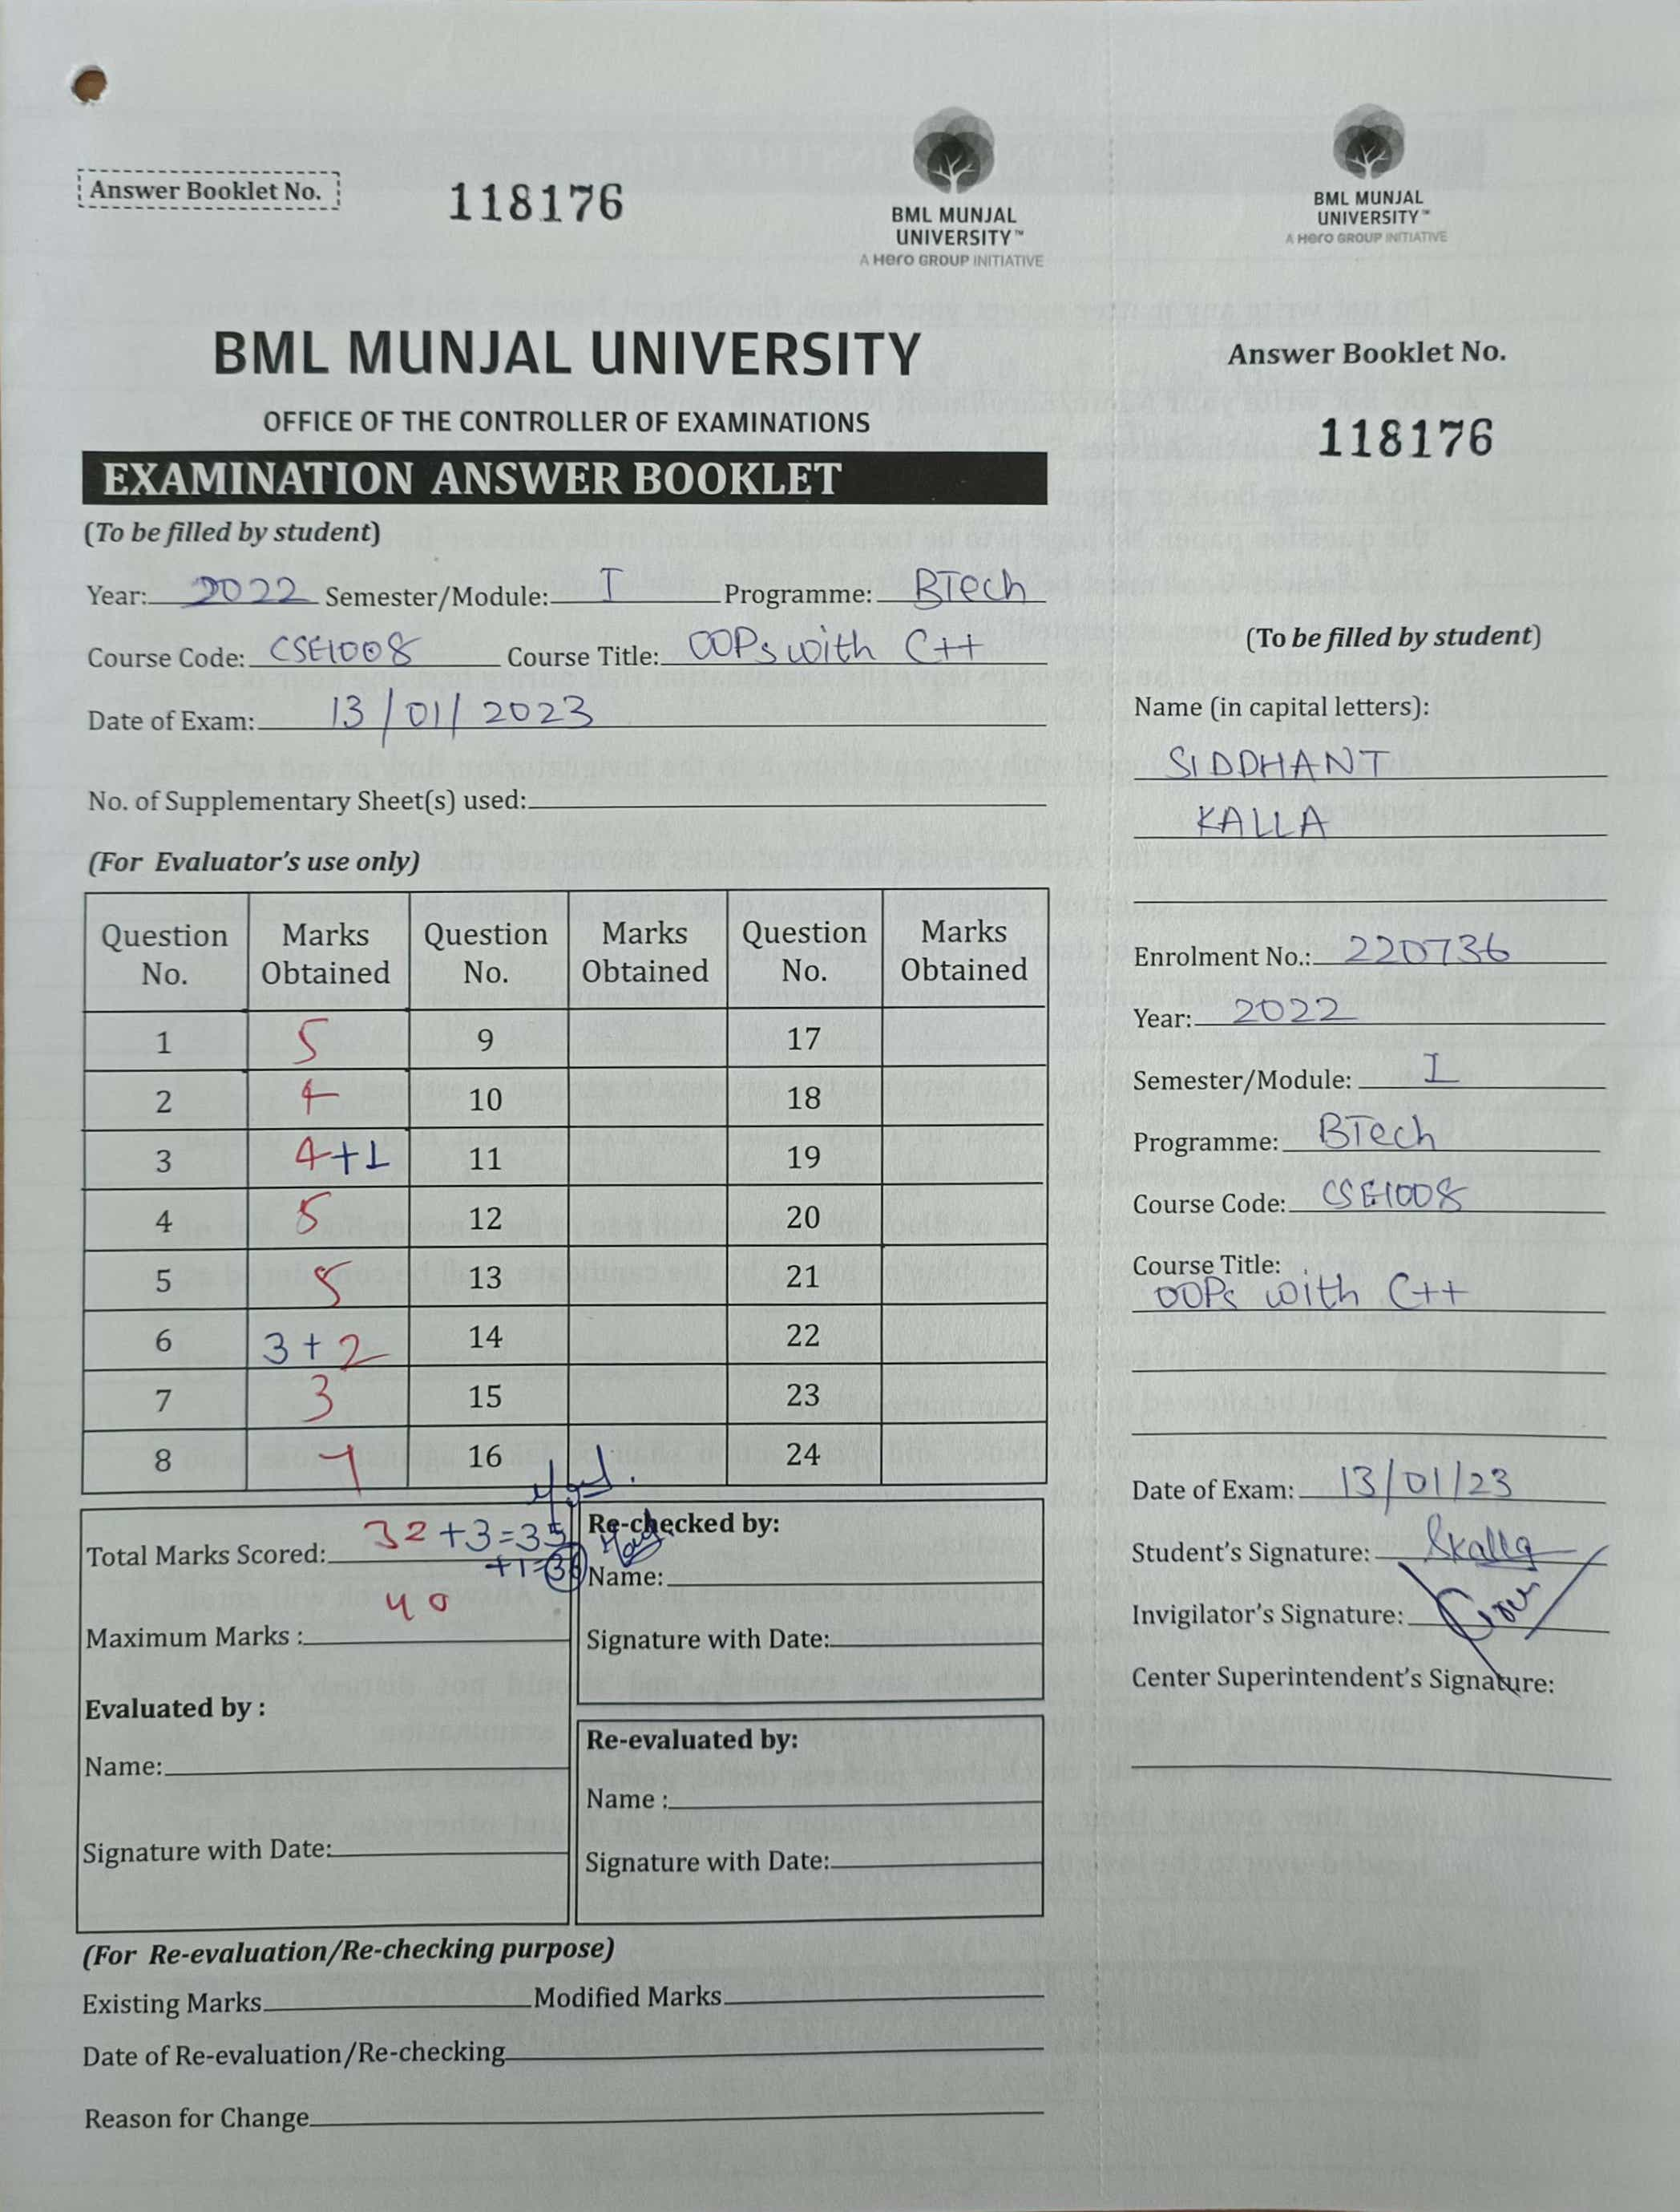 Answer Booklet No.
118176
BML MUNJAL
UNIVERSITY™
A Hero GROUP INITIATIVE
BML MUNJAL UNIVERSITY
OFFICE OF THE CONTROLLER OF EXAMINATIONS
EXAMINATION ANSWER BOOKLET
(To be filled by student)
Year: 2022 Semester/Module: I Programme: BTech
Course Code: CSE1008 Course Title: OOPs with C++
Date of Exam: 13/01/2023
No. of Supplementary Sheet(s) used:
(For Evaluator's use only)
Question No. Marks Obtained Question No. Marks Obtained Question No. Marks Obtained
1 5 9 17
2 4 10 18
3 4+1 11 19
4 5 12 20
5 5 13 21
6 3+2 14 22
7 3 15 23
8 4 16 24
Total Marks Scored: 32+3=35
+1=36
Maximum Marks : 40
Evaluated by :
Name:
Signature with Date:
Re-checked by:
Name:
Signature with Date:
Re-evaluated by:
Name :
Signature with Date:
(For Re-evaluation/Re-checking purpose)
Existing Marks Modified Marks
Date of Re-evaluation/Re-checking
Reason for Change
BML MUNJAL
UNIVERSITY™
A Hero GROUP INITIATIVE
Answer Booklet No.
118176
(To be filled by student)
Name (in capital letters):
SIDDHANT
KALLA
Enrolment No.: 220736
Year: 2022
Semester/Module: I
Programme: BTech
Course Code: CSE1008
Course Title:
OOPs with C++
Date of Exam: 13/01/23
Student's Signature: Skalla
Invigilator's Signature:
Center Superintendent's Signature: